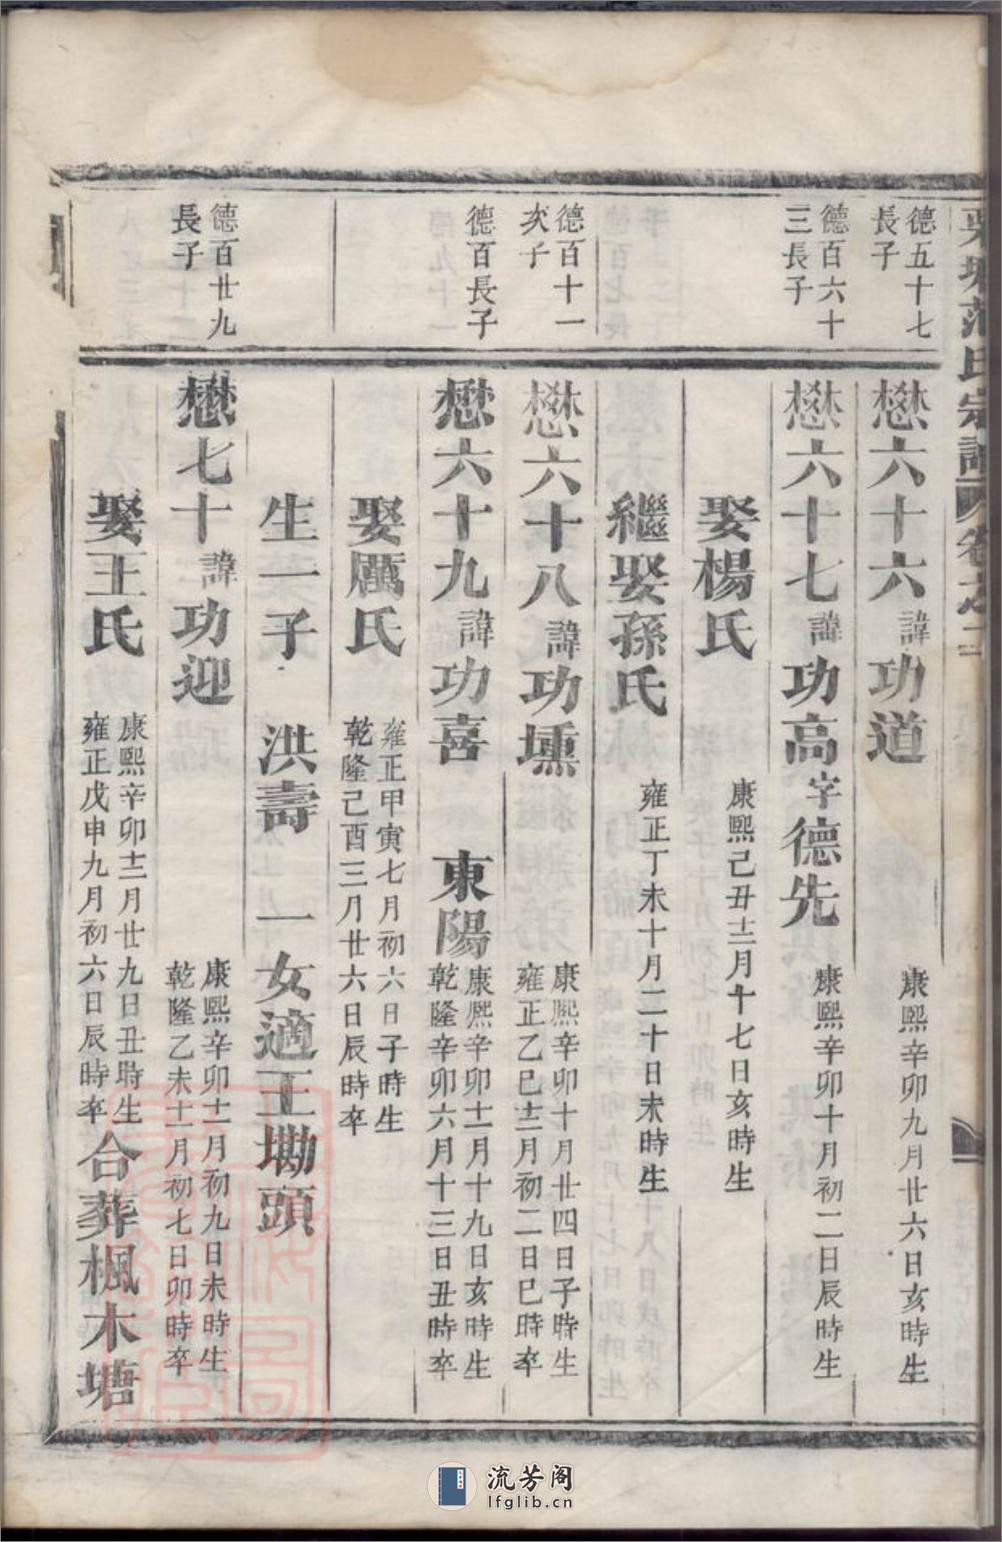 氏宗譜 卷之二
德五十七
長子
懋六十六諱功道
康熙辛卯九月廿六日亥時生
德百六十
三長子
懋六十七諱功高字德先
康熙辛卯十月初二日辰時生
娶楊氏
康熙己丑十二月十七日亥時生
繼娶孫氏
雍正丁未十月二十日未時生
德百十一
次子
懋六十八諱功壎
康熙辛卯十月廿四日子時生
雍正乙巳十二月初二日巳時卒
德百長子
懋六十九諱功喜 東陽
康熙辛卯十一月十九日亥時生
乾隆辛卯六月十三日丑時卒
娶厲氏
雍正甲寅七月初六日子時生
乾隆己酉三月廿六日辰時卒
生一子 洪壽 一女適王坳頭
德百廿九
長子
懋七十諱功迎
康熙辛卯十二月初九日未時生
乾隆乙未十一月初七日卯時卒
娶王氏
康熙辛卯十二月廿九日丑時生
雍正戊申九月初六日辰時卒
合葬楓木塘
流芳阁
lfglib.cn